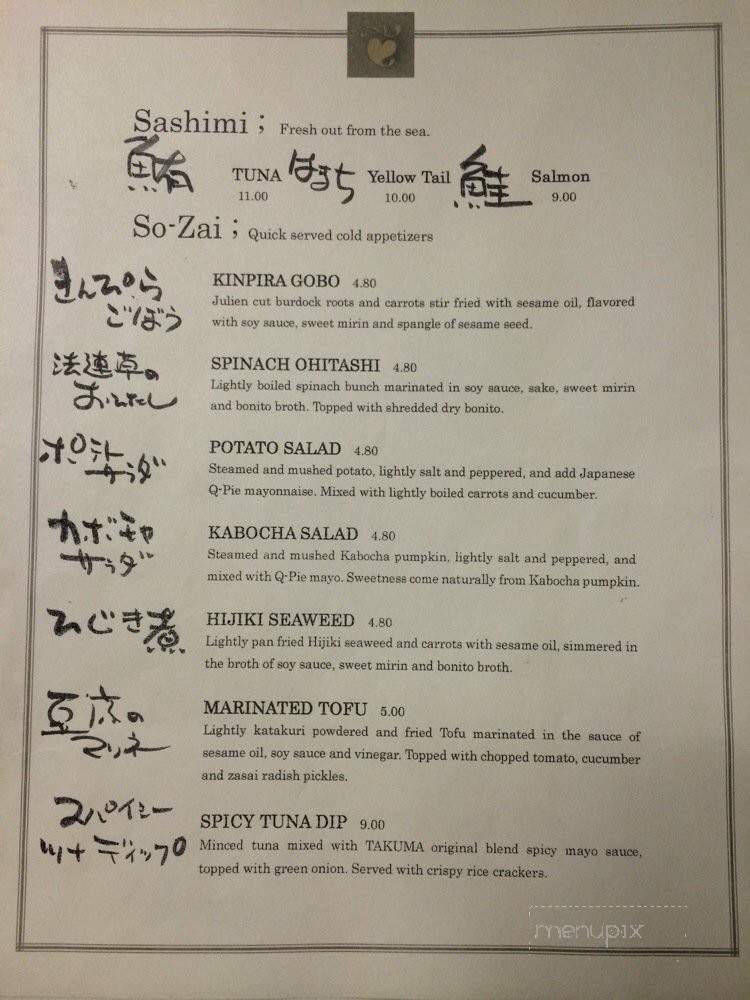 Sashimi ; Fresh out from the sea.
鮪 TUNA はまち Yellow Tail 鮭 Salmon
11.00 10.00 9.00
So-Zai ; Quick served cold appetizers
きんぴら
ごぼう
KINPIRA GOBO 4.80
Julien cut burdock roots and carrots stir fried with sesame oil, flavored
with soy sauce, sweet mirin and spangle of sesame seed.
法連草の
おひたし
SPINACH OHITASHI 4.80
Lightly boiled spinach bunch marinated in soy sauce, sake, sweet mirin
and bonito broth. Topped with shredded dry bonito.
ポテト
サラダ
POTATO SALAD 4.80
Steamed and mushed potato, lightly salt and peppered, and add Japanese
Q-Pie mayonnaise. Mixed with lightly boiled carrots and cucumber.
カボチャ
サラダ
KABOCHA SALAD 4.80
Steamed and mushed Kabocha pumpkin, lightly salt and peppered, and
mixed with Q-Pie mayo. Sweetness come naturally from Kabocha pumpkin.
ひじき煮
HIJIKI SEAWEED 4.80
Lightly pan fried Hijiki seaweed and carrots with sesame oil, simmered in
the broth of soy sauce, sweet mirin and bonito broth.
豆腐の
マリネ
MARINATED TOFU 5.00
Lightly katakuri powdered and fried Tofu marinated in the sauce of
sesame oil, soy sauce and vinegar. Topped with chopped tomato, cucumber
and zasai radish pickles.
スパイシー
ツナディップ
SPICY TUNA DIP 9.00
Minced tuna mixed with TAKUMA original blend spicy mayo sauce,
topped with green onion. Served with crispy rice crackers.
menupix